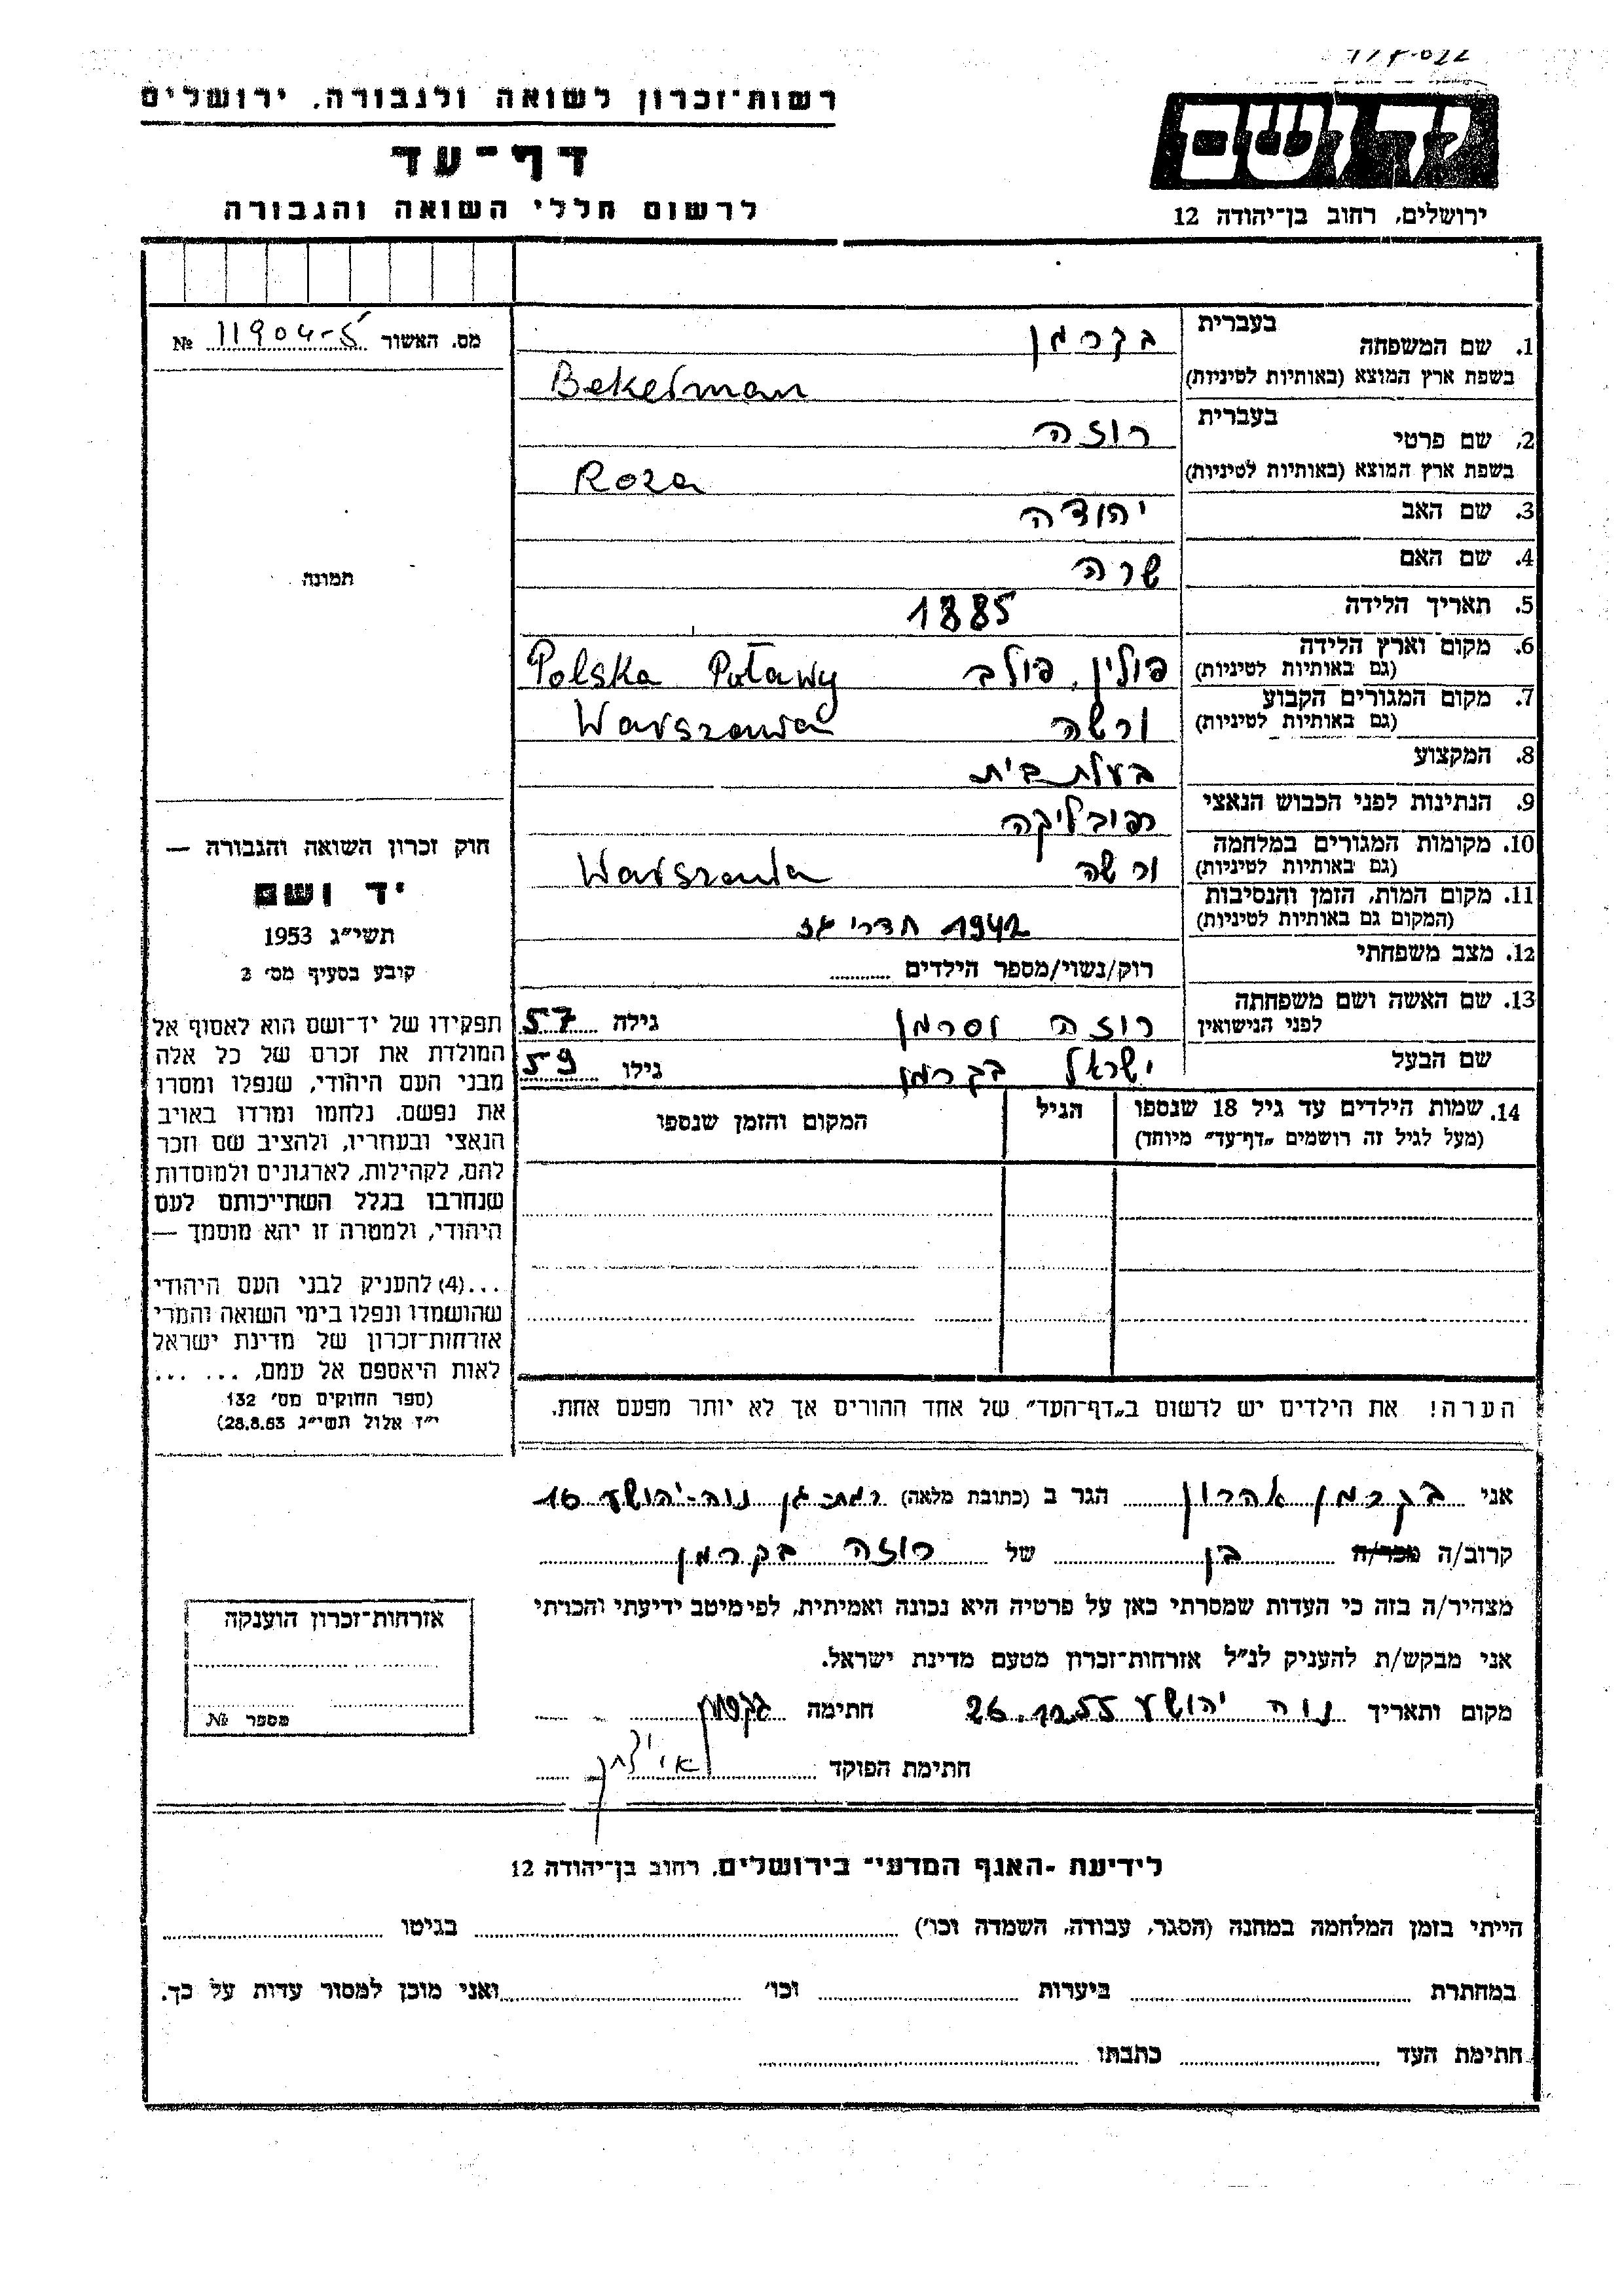 רשות־זכרון לשואה ולגבורה, ירושלים
דף־עד
לרשום חללי השואה והגבורה
יד ושם
ירושלים, רחוב בן־יהודה 12
מס. האשור 11904-5 №
תמונה
1. שם המשפחה בעברית בקרמן
בשפת ארץ המוצא (באותיות לטיניות) Bekerman
2. שם פרטי בעברית רוזה
בשפת ארץ המוצא (באותיות לטיניות) Roza
3. שם האב יהודה
4. שם האם שרה
5. תאריך הלידה 1885
6. מקום וארץ הלידה (גם באותיות לטיניות) פולין, פולב Polska Puławy
7. מקום המגורים הקבוע (גם באותיות לטיניות) ורשה Warszawa
8. המקצוע בעלת בית
9. הנתינות לפני הכבוש הנאצי רפובליקה
10. מקומות המגורים במלחמה (גם באותיות לטיניות) ורשה Warszawa
11. מקום המות, הזמן והנסיבות (המקום גם באותיות לטיניות) 1942 חדרי גז
12. מצב משפחתי רוק/נשוי/מספר הילדים
13. שם האשה ושם משפחתה לפני הנישואין רוזה וסרמן גילה 57
שם הבעל ישראל בקרמן גילו 59
14. שמות הילדים עד גיל 18 שנספו
(מעל לגיל זה רושמים „דף־עד" מיוחד)
הגיל
המקום והזמן שנספו
הערה! את הילדים יש לרשום ב„דף־העד" של אחד ההורים אך לא יותר מפעם אחת.
חוק זכרון השואה והגבורה —
יד ושם
תשי"ג 1953
קובע בסעיף מס' 2
תפקידו של יד־ושם הוא לאסוף אל
המולדת את זכרם של כל אלה
מבני העם היהודי, שנפלו ומסרו
את נפשם, נלחמו ומרדו באויב
הנאצי ובעוזריו, ולהציב שם וזכר
להם, לקהילות, לארגונים ולמוסדות
שנחרבו בגלל השתייכותם לעם
היהודי, ולמטרה זו יהא מוסמך —
...(4) להעניק לבני העם היהודי
שהושמדו ונפלו בימי השואה והמרי
אזרחות־זכרון של מדינת ישראל
לאות היאספם אל עמם, ... ...
(ספר החוקים מס' 132
י"ז אלול תשי"ג 28.8.53)
אני בקרמן אהרון הגר ב (כתובת מלאה) רמת-גן נוה-יהושע 16
קרוב/ה מכר/ה בן של רוזה בקרמן
מצהיר/ה בזה כי העדות שמסרתי כאן על פרטיה היא נכונה ואמיתית, לפי מיטב ידיעתי והכרתי
אני מבקש/ת להעניק לנ"ל אזרחות־זכרון מטעם מדינת ישראל.
מקום ותאריך נוה יהושע 26.12.55 חתימה בקרמן
חתימת הפוקד
אזרחות־זכרון הוענקה
מספר №
לידיעת -האגף המדעי" בירושלים, רחוב בן־יהודה 12
הייתי בזמן המלחמה במחנה (הסגר, עבודה, השמדה וכו') בגיטו
במחתרת ביערות וכו' ואני מוכן למסור עדות על כך.
חתימת העד כתבתו